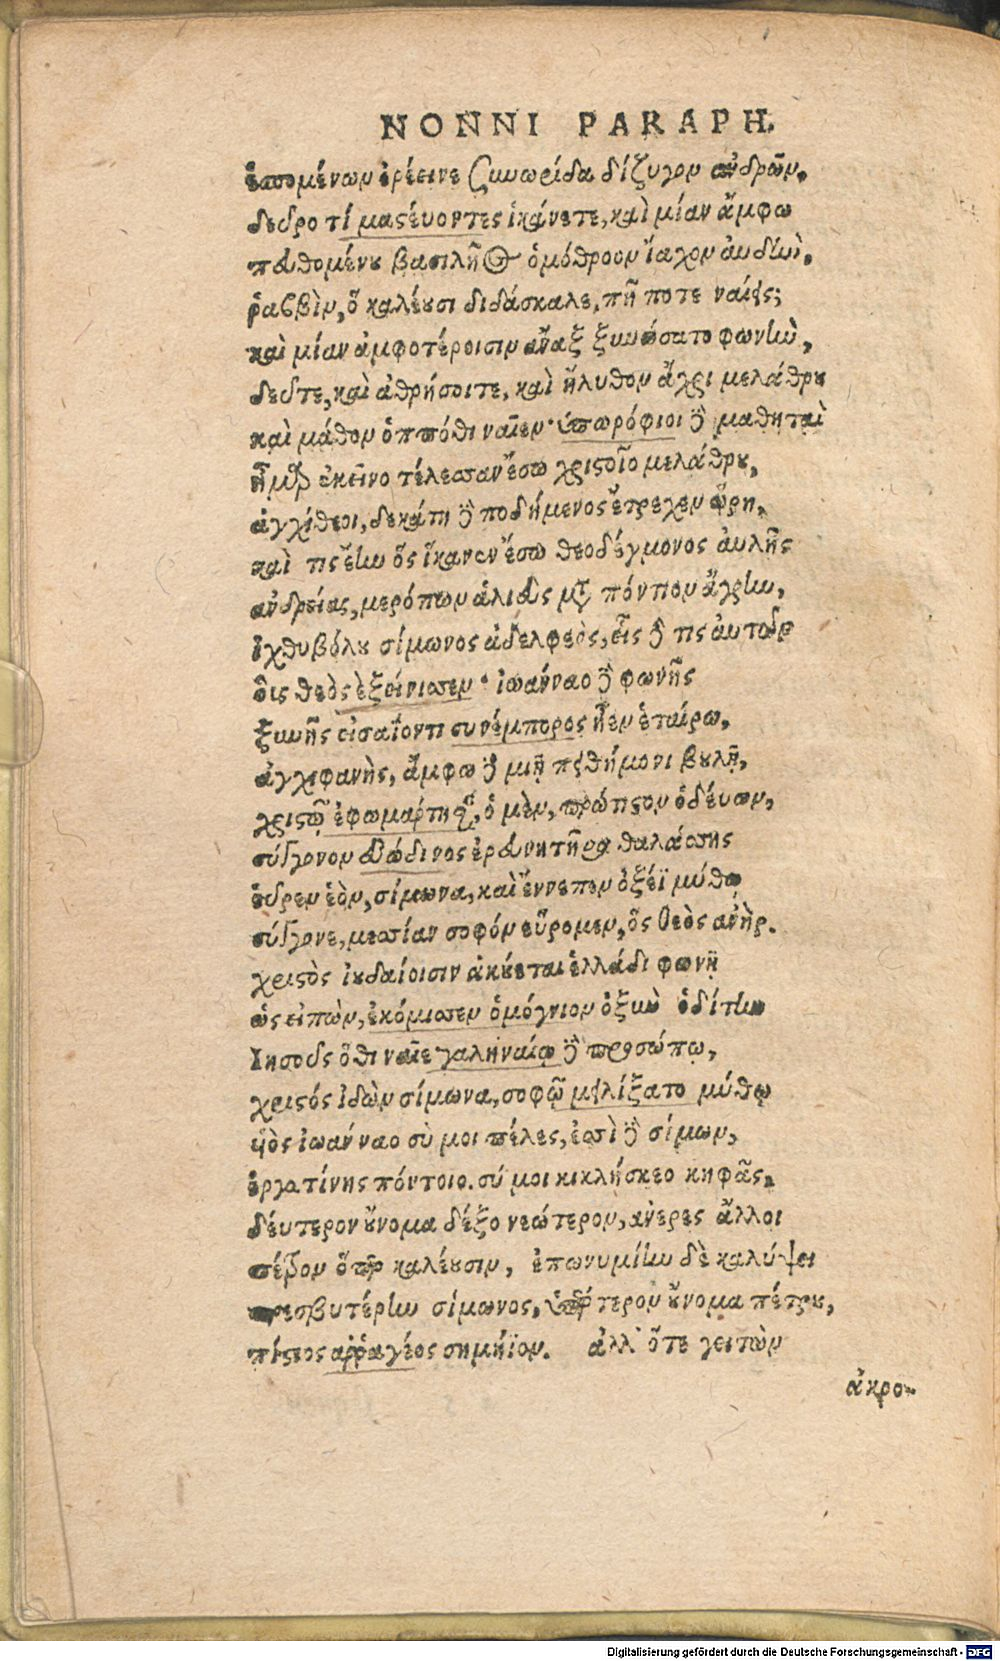 NONNI PARAPH.
ἑσπομένων ἐρέεινε ξυνωρίδα δίζυγον ἀνδρῶν.
δεῦρο τί μαστεύοντες ἱκάνετε, καὶ μίαν ἄμφω
πευθομένου βασιλῆος ὁμόθροον ἴαχον αὐδὴν.
ῥαββὶν, ὃ καλέουσι διδάσκαλε, πῆ ποτε ναίεις;
καὶ μίαν ἀμφοτέροισιν ἄναξ ξυνώσατο φωνὴν,
δεῦτε, καὶ ἀθρήσοιτε, καὶ ἤλυθον ἄχρι μελάθρου
καὶ μάθον ὁππόθι ναῖεν· ὑπωρόφιοι δὲ μαθηταὶ
ἦμαρ ἐκεῖνο τέλεσσαν ἔσω χριστοῖο μελάθρου,
ἀγχίθεοι, δεκάτη δὲ ποδήμενος ἔτρεχεν ὥρη,
καὶ τις ἔην ὃς ἵκανεν ἔσω θεοδέγμονος αὐλῆς
ἀνδρείας, μερόπων ἁλιεὺς μετὰ πόντιον ἄγρην,
ἰχθυβόλου σίμωνος ἀδελφεὸς, εἷς δέ τις αὐτὸς
οἷς θεὸς ἐξείνισσεν· ἰωάνναο δὲ φωνῆς
ξυνῆς εἰσαΐοντι συνέμπορος ἦεν ἑταίρω,
ἀγχιφανὴς, ἄμφω δὲ μιῇ πειθήμονι βουλῇ,
χριστῷ ἐφωμάρτησαν, ὁ μὲν, πρώτιστον ὁδεύων,
σύγγονον εὐώδινος ἐρευνητῆρα θαλάσσης
εὗρεν ἑὸν, σίμωνα, καὶ ἔννεπεν ὀξέϊ μύθῳ
σύγγονε, μεσσίαν σοφόν εὕρομεν, ὃς θεὸς ἀνὴρ.
χριστὸς ἰουδαίοισιν ἀκούεται ἑλλάδι φωνῇ
ὣς εἰπὼν, ἐκόμισσεν ὁμόγνιον ὀξὺν ὁδίτην
Ιησοῦς ὅθι ναῖε γαληναίῳ δὲ προσώπῳ,
χριστός ἰδὼν σίμωνα, σοφῷ μειλίξατο μύθῳ
υἱὸς ἰωάνναο σὺ μοι πέλες, ἐσσὶ δὲ σίμων,
ἐργατίνης πόντοιο. σύ μοι κικλήσκεο κηφᾶς,
δεύτερον οὔνομα δέξο νεώτερον, ἀνερες ἄλλοι
σέβον ὅπερ καλέουσιν, ἐπωνυμίην δὲ καλύψει
πρεσβυτέρην σίμωνος, ὑπέρτερον οὔνομα πέτρου,
πίστιος ἀῤῥαγέος σημήϊον. ἀλλ' ὅτε γείτων
ἀκρο-
Digitalisierung gefördert durch die Deutsche Forschungsgemeinschaft - DFG